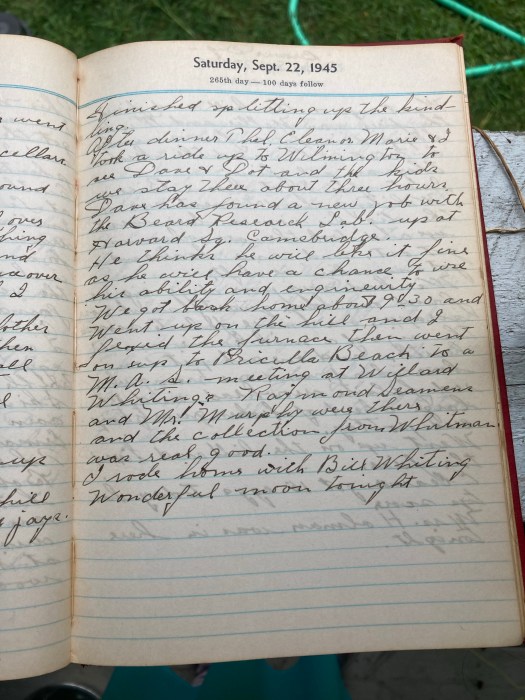 Saturday, Sept. 22, 1945
265th day — 100 days follow
Finished splitting up the kind-
ling.
After dinner Thel, Eleanor Marie & I
took a ride up to Wilmington to
see Dave & Dot and the kids
we stay there about three hours
Dave has found a new job with
the Beard Research Lab. up at
Harvard Sq. Camebridge.
He thinks he will like it fine
as he will have a chance to use
his ability and engineurity
We got back home about 9:30 and
Went up on the hill and I
fixed the furnace then went
on up to Pricilla Beach to a
M. A. S. meeting at Willard
Whitings. Raymond Seamens
and Mr. Murphy were there
and the collection from Whitman
was real good.
I rode home with Bill Whiting
Wonderful moon tonight
went
cellar
ound
loves
thing
nd
over
& I
other
then
all
up
hill
jays.